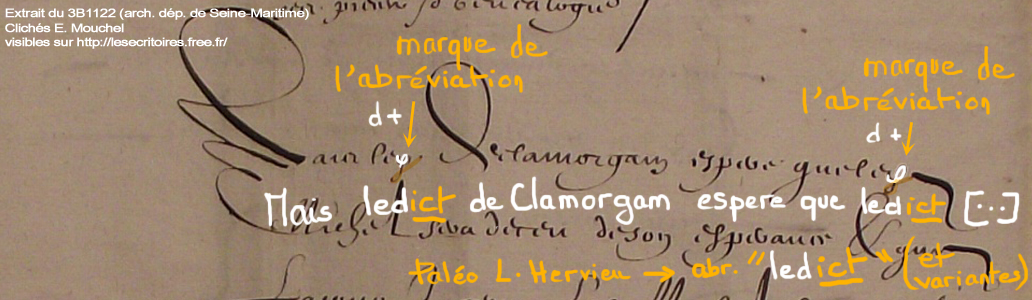 Extrait du 3B1122 (arch. dép. de Seine-Maritime)
Clichés E. Mouchel
visibles sur http://lesecritoires.free.fr/
marque de
l'abréviation
d +
marque de
l'abréviation
d +
de Clamorgam espere que
Mais ledict de Clamorgam espere que ledict [...]
de son esperance
Paléo L. Hervieu → abr. "ledict" (et variantes)